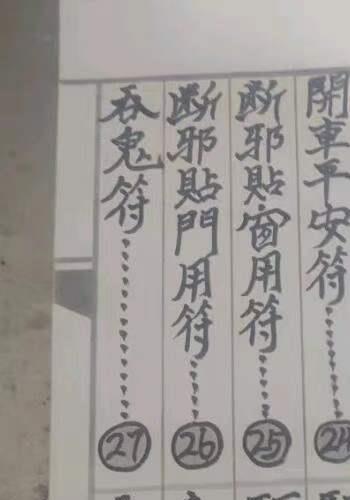 開車平安符………24
断邪貼窗用符……25
断邪貼門用符……26
吞鬼符………………27